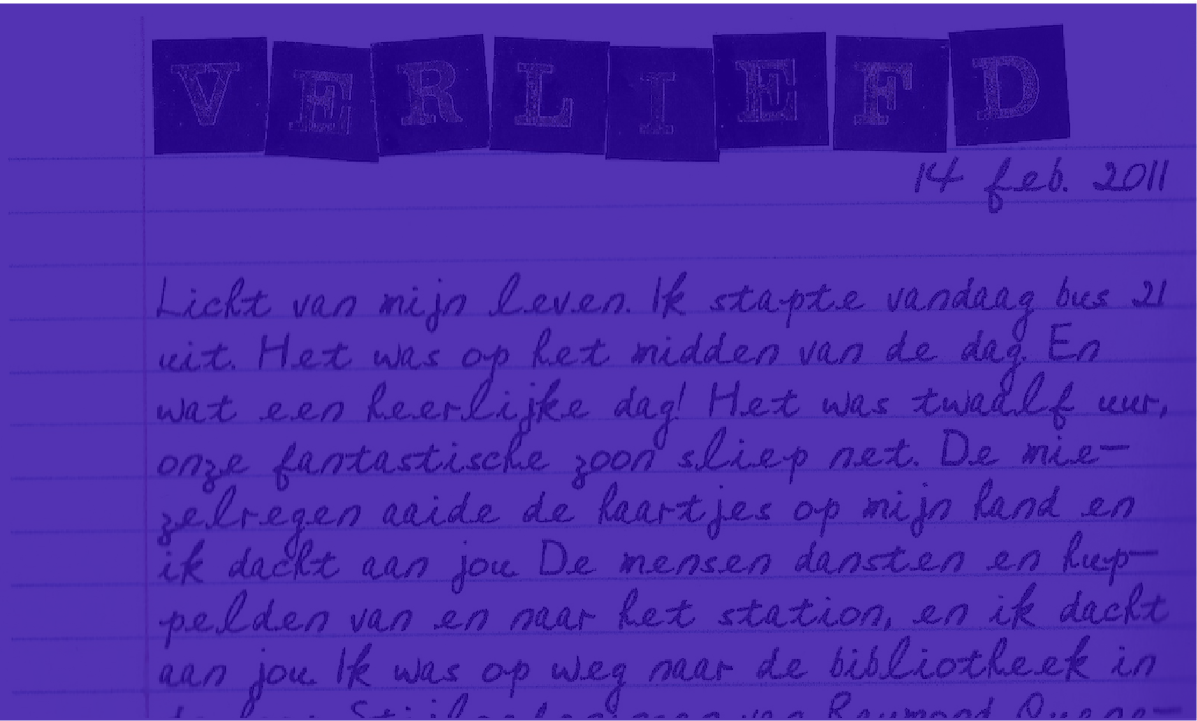 VERLIEFD
14 feb. 2011
Licht van mijn leven. Ik stapte vandaag bus 21
uit. Het was op het midden van de dag. En
wat een heerlijke dag! Het was twaalf uur,
onze fantastische zoon sliep net. De mie-
zelregen aaide de haartjes op mijn hand en
ik dacht aan jou. De mensen dansten en hup-
pelden van en naar het station, en ik dacht
aan jou. Ik was op weg naar de bibliotheek in